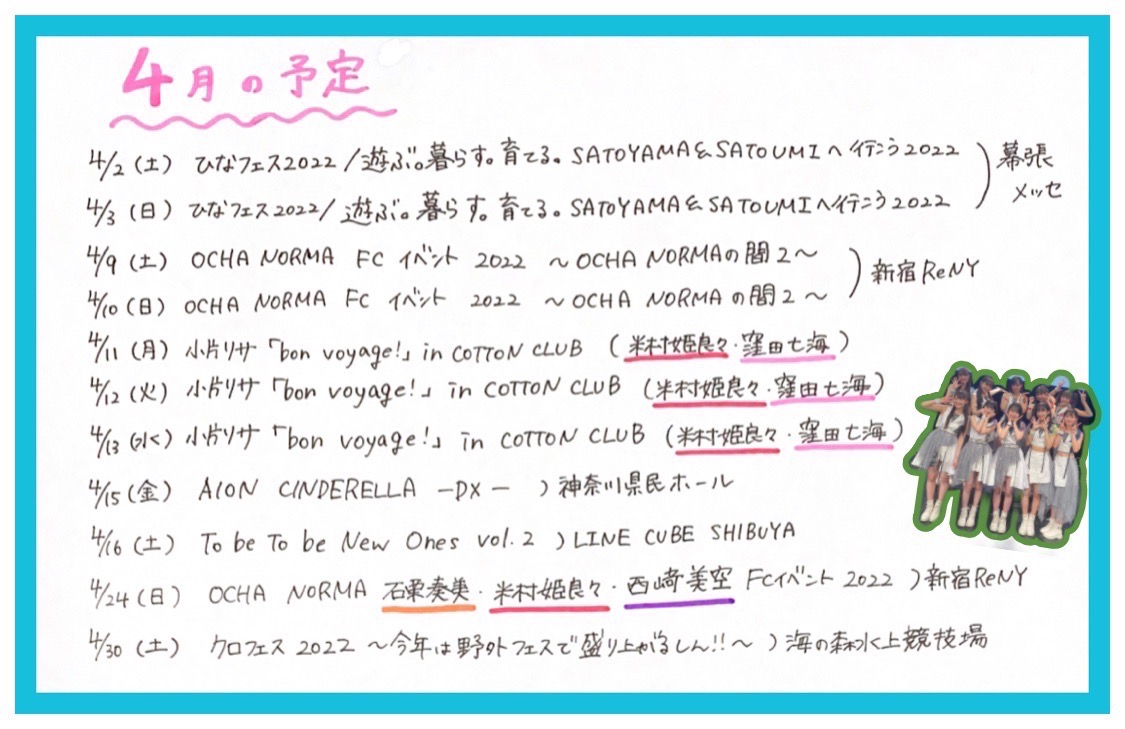 4月の予定
4/2（土） ひなフェス2022/遊ぶ。暮らす。育てる。SATOYAMA & SATOUMIへ行こう2022
4/3（日） ひなフェス2022/遊ぶ。暮らす。育てる。SATOYAMA & SATOUMIへ行こう2022 ）幕張メッセ
4/9（土） OCHA NORMA FC イベント 2022 ～OCHA NORMAの間2～
4/10（日） OCHA NORMA FC イベント 2022 ～OCHA NORMAの間2～ ）新宿ReNY
4/11（月） 小片リサ「bon voyage!」in COTTON CLUB （米村姫良々・窪田七海）
4/12（火） 小片リサ「bon voyage!」in COTTON CLUB （米村姫良々・窪田七海）
4/13（水） 小片リサ「bon voyage!」in COTTON CLUB （米村姫良々・窪田七海）
4/15（金） AION CINDERELLA －DX－ ）神奈川県民ホール
4/16（土） To be To be New Ones vol.2 ）LINE CUBE SHIBUYA
4/24（日） OCHA NORMA 石栗奏美・米村姫良々・西﨑美空 FCイベント 2022 ）新宿ReNY
4/30（土） クロフェス 2022 ～今年は野外フェスで盛り上がるしん!!～ ）海の森水上競技場